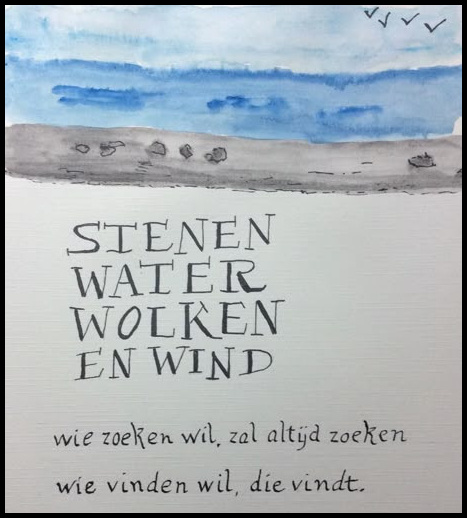 STENEN
WATER
WOLKEN
EN WIND
wie zoeken wil, zal altijd zoeken
wie vinden wil, die vindt.